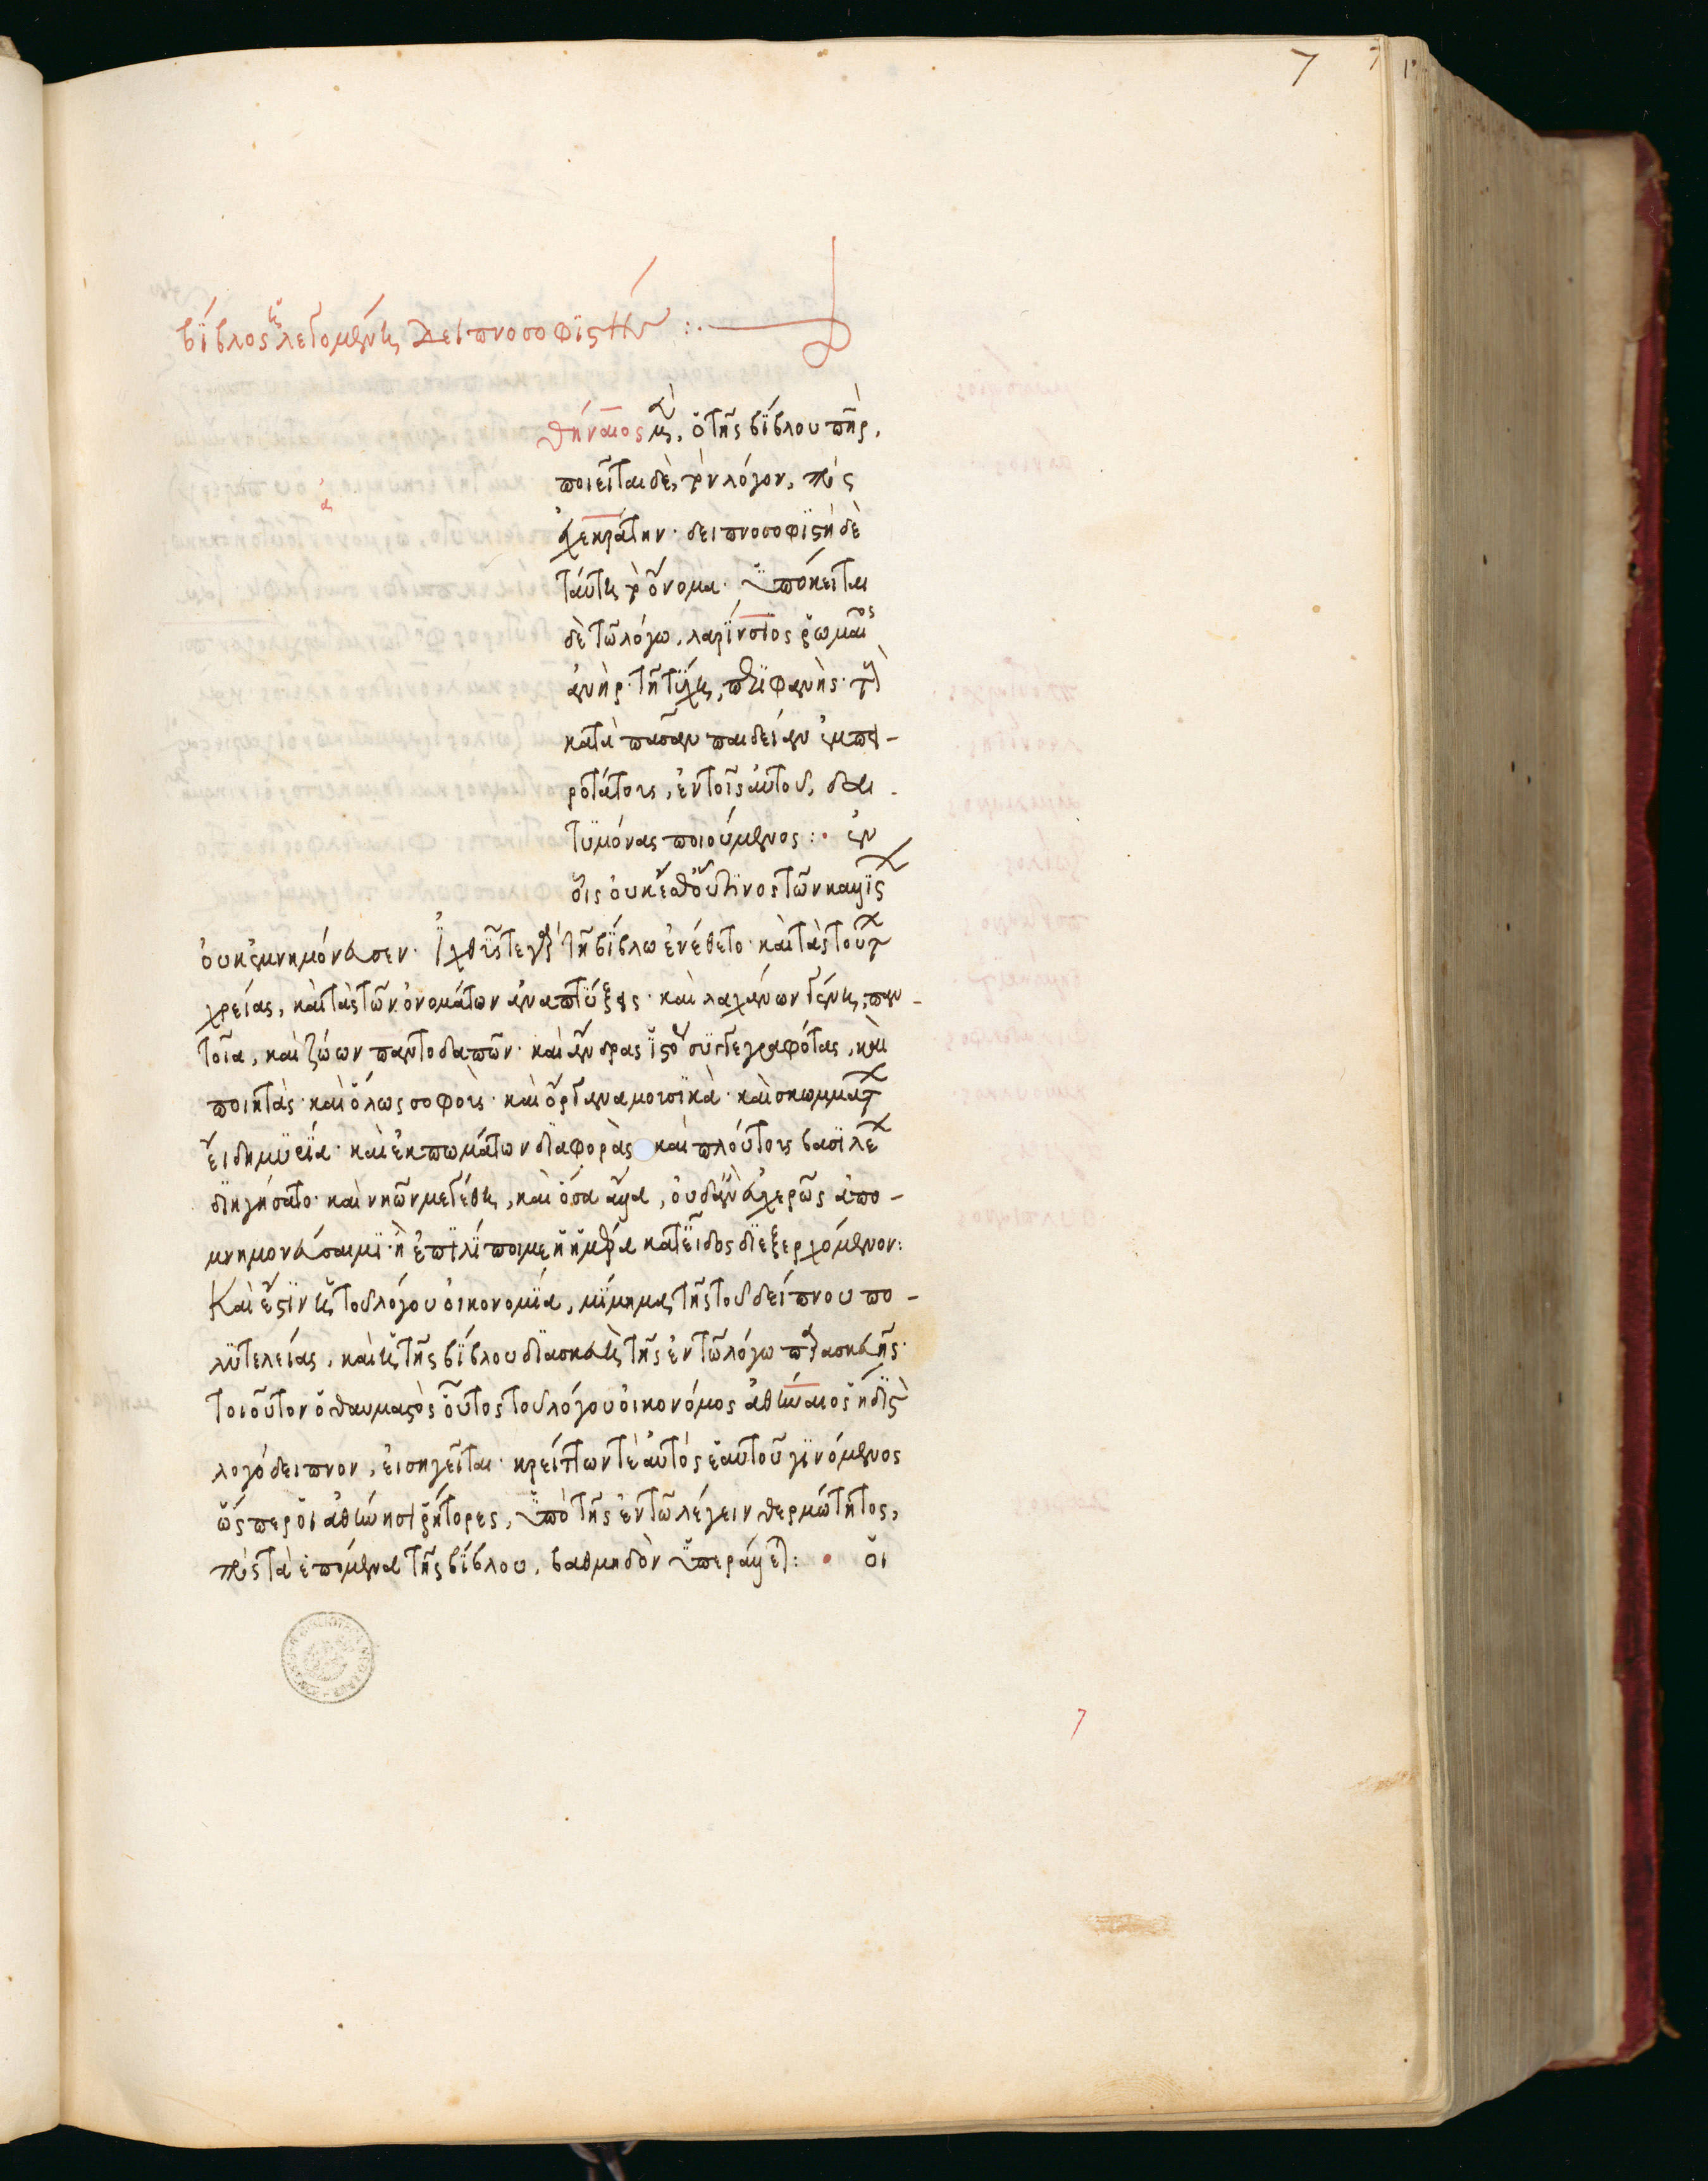 7
βίβλος ἡ λεγομένη Δειπνοσοφιστῶν :·
θήναιος μὲν, ὁ τῆς βίβλου πατὴρ,
ποιεῖται δὲ, τὸν λόγον, πρὸς
τιμοκράτην· δειπνοσοφιστὴς δὲ
ταύτη τὸ ὄνομα· ὑπόκειται
δὲ τῶ λόγω, λαρίνσιος ῥωμαῖος
ἀνὴρ· τῆ τύχη, περιφανὴς· τοὺς
κατὰ πᾶσαν παιδείαν ἐμπει-
ροτάτους, ἐν τοῖς αὐτοῦ, δαι-
τυμόνας ποιούμενος :· ἐν
οἷς οὐκ ἔσθ' οὗτινος τῶν καλλίστων
οὐκ ἐμνημόνευσεν· ἰχθῦς τε γὰρ τῆ βίβλω ἐνέθετο· καὶ τὰς τούτων
χρείας, καὶ τὰς τῶν ὀνομάτων ἀναπτύξεις· καὶ λαχάνων γένη, παν-
τοῖα, καὶ ζώων παντοδαπῶν· καὶ ἄνδρας ἱστορίας συγγεγραφότας, καὶ
ποιητὰς· καὶ ὅλως σοφοὺς· καὶ ὄργανα μουσικὰ· καὶ σκωμμάτων
εἴδη μυρία· καὶ ἐκπωμάτων διαφορὰς καὶ πλούτους βασιλέων
διηγήσατο· καὶ νηῶν μεγέθη, καὶ ὅσα ἄλλα, οὐδ' ἂν εὐχερῶς ἀπο-
μνημονεύσαιμι· ἢ ἐπιλίποι με ἡ ἡμέρα κατ' εἶδος διεξερχόμενον:
Καὶ ἔστιν ἡ τοῦ λόγου οἰκονομία, μίμημα τῆς τοῦ δείπνου πο-
λυτελείας, καὶ ἡ τῆς βίβλου διασκευὴ τῆς ἐν τῶ λόγω παρασκευῆς·
τοιοῦτον ὁ θαυμαστὸς οὗτος τοῦ λόγου οἰκονόμος ἀθήναιος ἥδιστον
λογόδειπνον, εἰσηγεῖται· κρείττων τὲ αὐτὸς ἑαυτοῦ γινόμενος
ὥσπερ οἱ ἀθήνησι ῥήτορες, ὑπὸ τῆς ἐν τῶ λέγειν θερμότητος,
πρὸς τὰ ἑπόμενα τῆς βίβλου, βαθμηδὸν ὑπεράλλεται: · οἱ
7